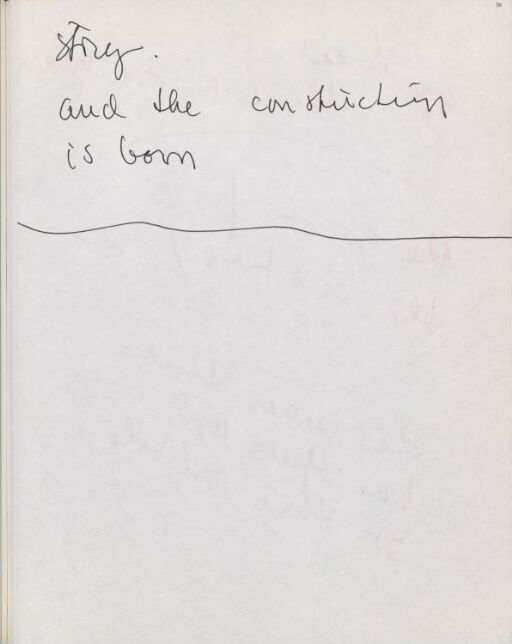 story.
and the construction
is born